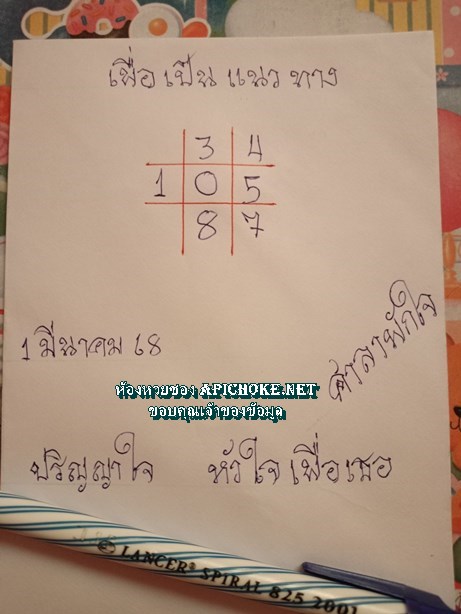 เพื่อเป็นแนวทาง
3 4
1 0 5
8 7
1 มีนาคม 68
ศาลาพักใจ
ห้องหวยซอง APICHOKE.NET
ขอบคุณเจ้าของข้อมูล
ปริญญาใจ หัวใจเพื่อเธอ
LANCER SPIRAL 825 2001